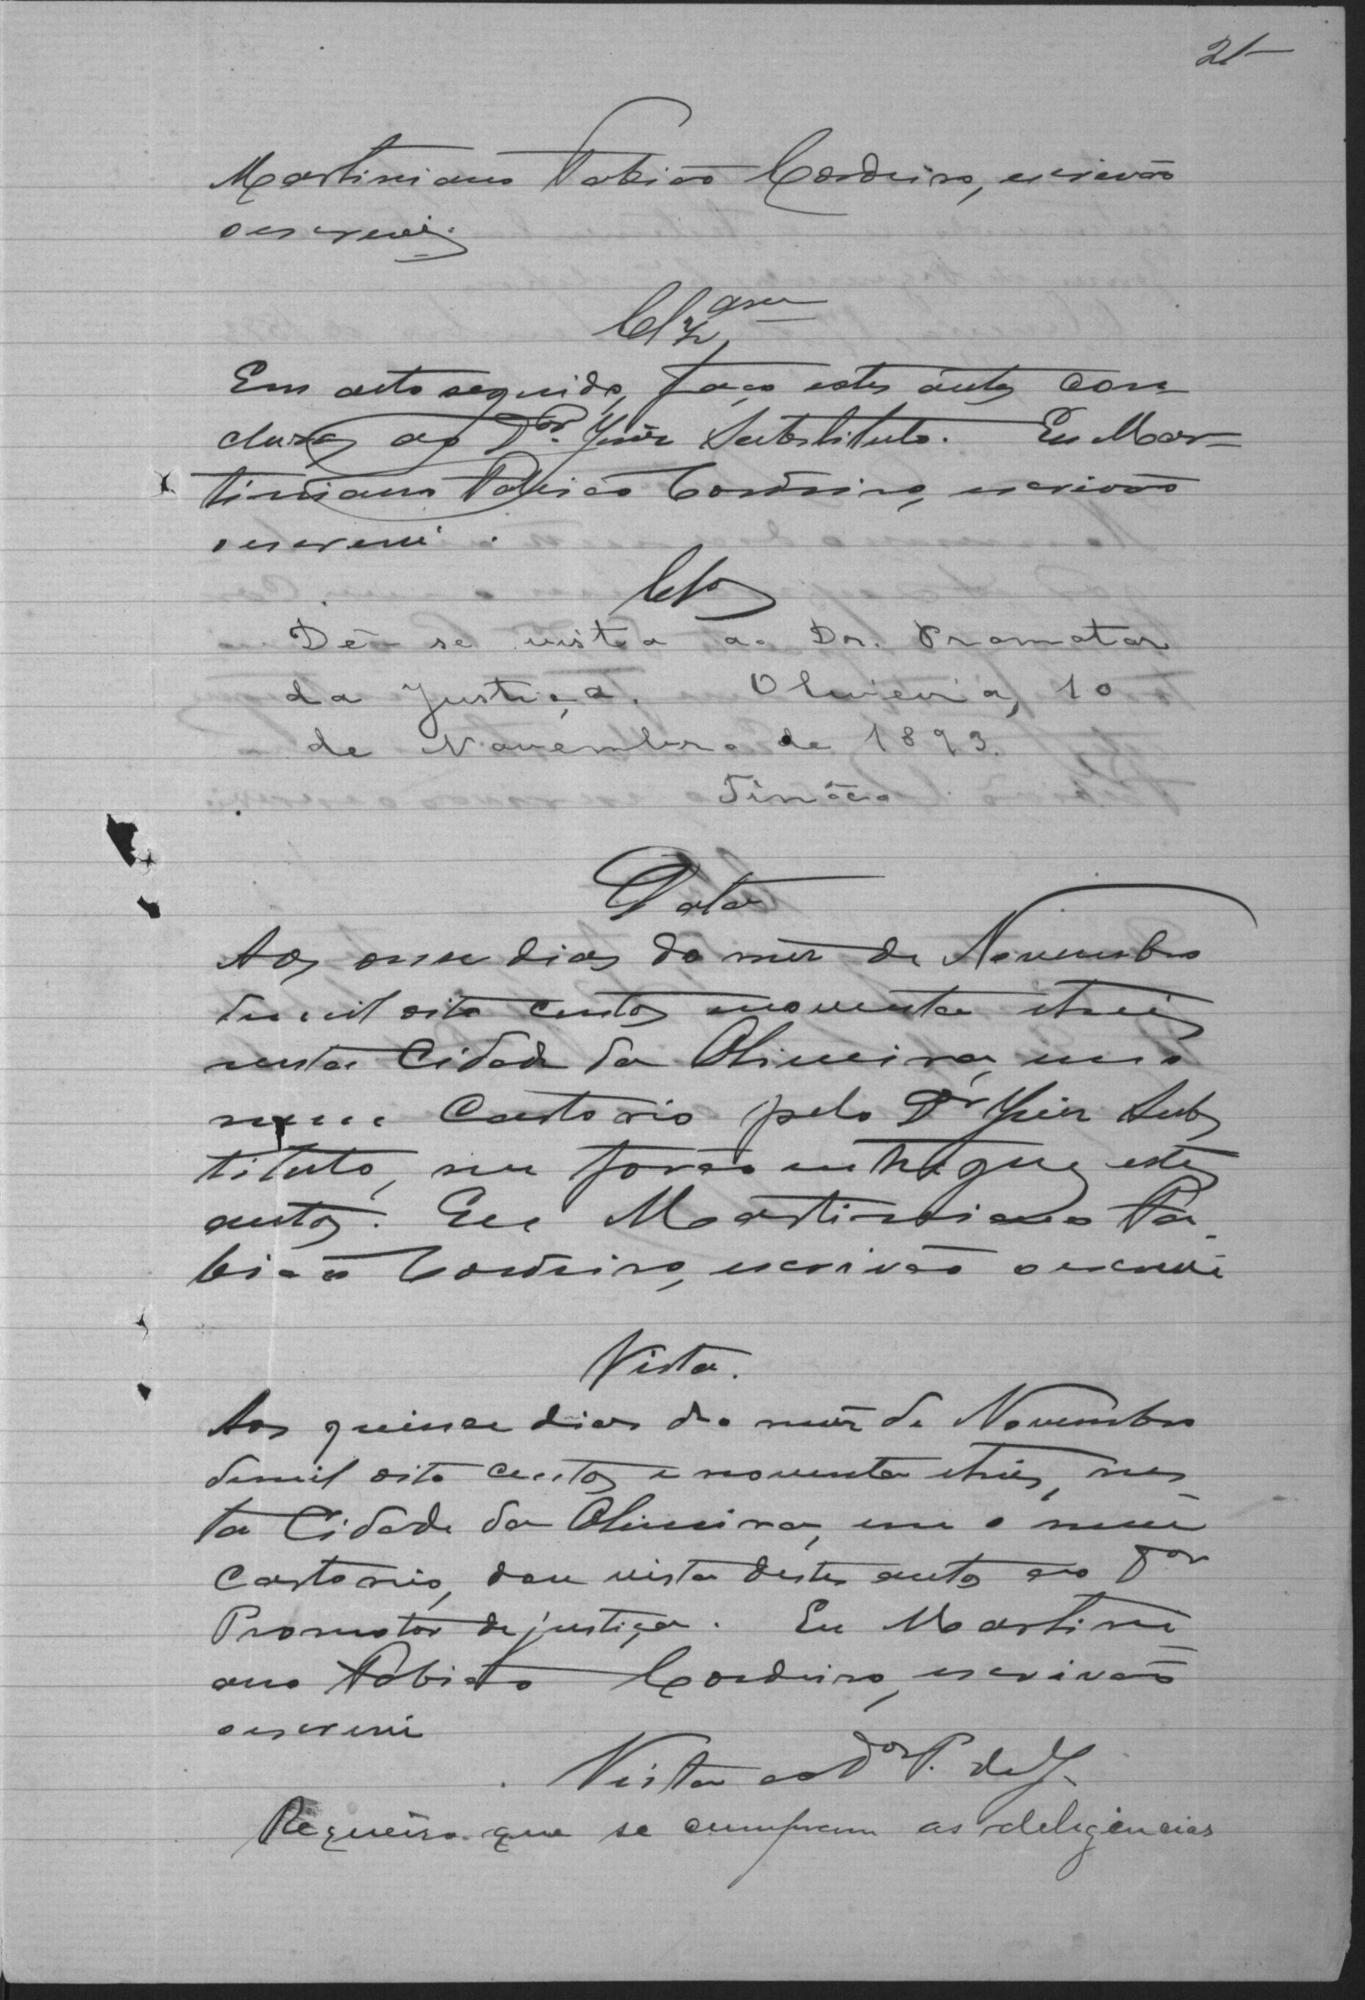 21
Martiniano Fabião Cordeiro, escrivão
o escrevi.
Clzam
Em acto seguido, faço estes autos con
clusos ao Dor. Juiz Substituto. Eu Mar-
tiniano Fabião Cordeiro, escrivão
o escrevi.
Clos
Dê-se vista ao Dr. Promotor
da Justiça. Oliveira, 10
de Novembro de 1893.
Tinôco
Data
Aos onze dias do mez de Novembro
de mil oito centos noventa e treis
nesta Cidade da Oliveira, em o
meu Cartorio pelo Dr Juiz Subs
tituto, me forão entregues estes
autos. Eu Martiniano Fa-
bião Cordeiro, escrivão o escrevi
Vista.
Aos quinse dias do mez de Novembro
de mil oito centos e noventa e treis, nes
ta Cidade da Oliveira, em o meu
Cartorio, dou vista destes autos ao Dor
Promotor de justiça. Eu Martini
ano Fabião Cordeiro, escrivão
o escrevi
Vista ao Dor P. de J.
Requeiro que se cumpram as deligencias